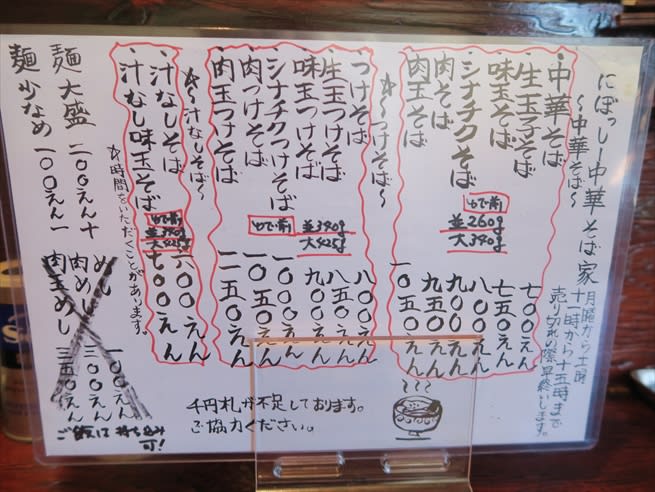 にぼっしー中華そば家
月曜から土曜
十一時から十五時まで
売り切れの際早終いします。
〜中華そば〜
・中華そば 七〇〇えん
・生玉子そば 七五〇えん
・味玉そば 八〇〇えん
・シナチクそば 九〇〇えん
・肉そば 九五〇えん
・肉玉そば 一〇五〇えん
ゆで前
並260g
大340g
☆〜つけそば〜
・つけそば 八〇〇えん
・生玉つけそば 八五〇えん
・味玉つけそば 九〇〇えん
・シナチクつけそば 一〇〇〇えん
・肉つけそば 一〇五〇えん
・肉玉つけそば 一一五〇えん
ゆで前
並340g
大425g
☆〜汁なしそば〜
・汁なしそば 六〇〇えん
・汁なし味玉そば 七〇〇えん
ゆで前
並340g
大425g
☆時間をいただくことがあります。
麺大盛 一〇〇えん十
麺少なめ 一〇〇えん一
めし 一〇〇えん
肉めし 三〇〇えん
肉玉めし 三五〇えん
ご飯は持ち込み
可!
千円札が不足しております。
ご協力ください。